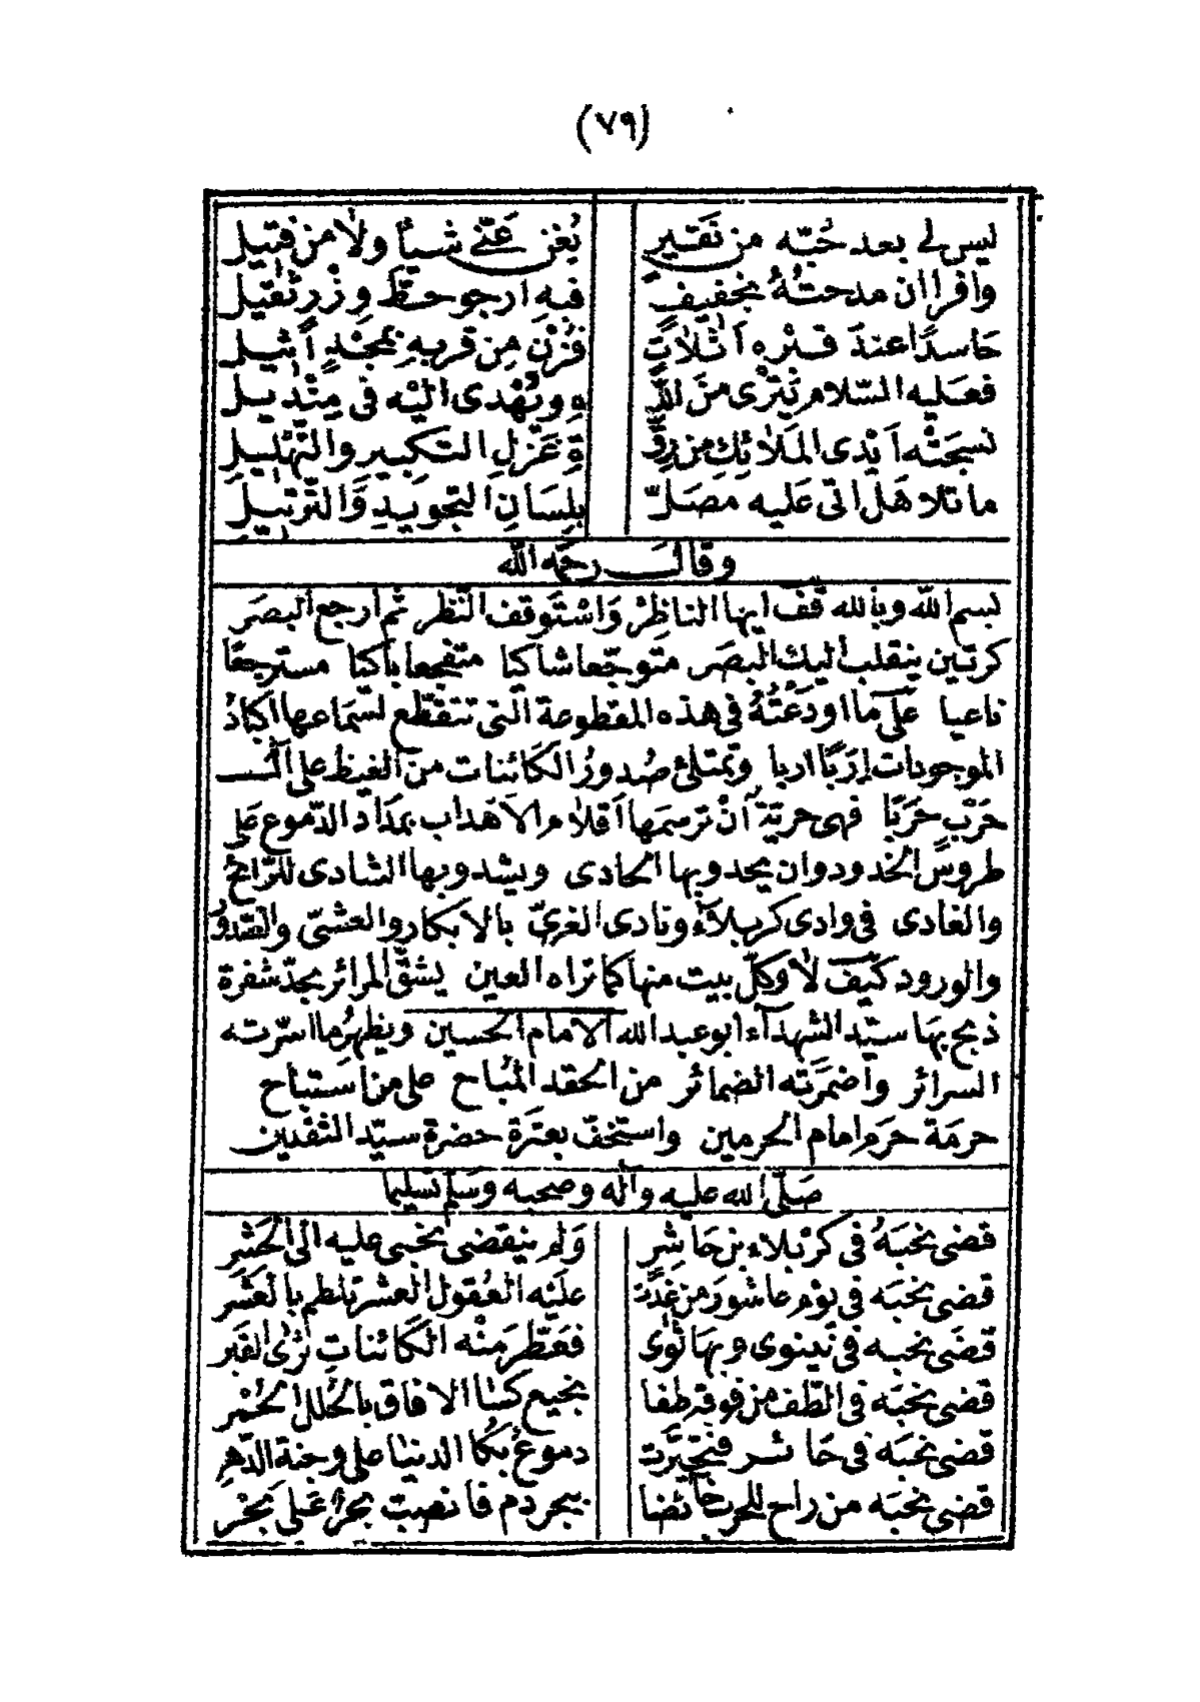 (٧٩)
ليس لي بعد حُبّه من نَقير يُغنِ عَنّي شيئاً ولا من فتيل
وافرا ان مدحتُهُ بخفيفٍ فبهِ ارجو حطّ وِزْرٍ ثقيل
حاسدًا عندَ قبْرهِ اَثْلاتٍ فُزْنَ مِن قربهِ بمجْدٍ أثيل
فعليه السّلام يَتْرى منَ اللّٰـ ـهِ ويُهْدى اليْه في مِنْديل
نسجَتْه اَيْدى المَلائِكِ من غَزْلِ التكبير والتّهْليل
ما تلا هَلْ اتى عَليه مصَلّ بلِسَانِ التجويدِ وَالتّرتيل
وقال رحمه الله
بسم الله وبالله قف ايها الناظِر وَاسْتَوقف النّظر ثم ارجع البصَر
كرّتين ينقلب اليك البصَر متوجّعا شاكيا متفجعا باكيا مسترجعًا
ناعيا عَلى ما اودَعْتُهُ في هذه المقطوعة التي تتقطّع لسَماعها اكبادُ
الموجودات إرَبًا اربا وتمتلئ صُدورُ الكَائنات منَ الغيظ على آلِ
حَرْبٍ حَرَبًا فهى حريّة اَنْ ترسمَها اَقلام الاَهداب بمدَاد الدّموع عَلى
طروسِ الخدود وان يحدو بها الحادى ويشدو بها الشادى للرّائحِ
والغادى في وادى كربلاء ونادى الغريّ بالابكار والعشىّ والصّدُور
والورود كيْفَ لا وكلّ بيت منها كما تراه العين يشقّ المرائر بحدّ شفرة
ذبح بهَا سيّد الشهدآء ابو عبد الله الامام الحسين ويظهرُ ما اسرّته
السرائر واضمَرَته الضمائر من الحقد المُباح على من استباح
حرمَة حرَم امام الحرمين واستخفّ بعترَة حضرة سيّد الثقلين
صَلّى الله عليه واله وصحبه وَسَلم تسليما
قضى نحبَهُ في كَرْبلاء بن حَاشِر وَلم ينقضى نحبى عليه الى الحَشْر
قضى نحبَه في يَوْم عاشورَ من غَدَتْ عليْه العُقول العشر تلطم بالعَشْر
قضَى نحبه في نَينوى وبهَا ثَوَى فعَطّرَ منْه الكَائناتِ ثرَى القبْر
قضى نحبَه في الطّف من فوقه طفا نجيع كسَا الافاق بالحُلل الحُمْر
قضى نحبَه في حَائر فتحيّرَت دموعُ بُكا الدنيا على وجنة الدّهر
قضى نحبَه من راح للحربِ خائضا ببحر دم فانصبّ بحرٌ عَلى بَحْر